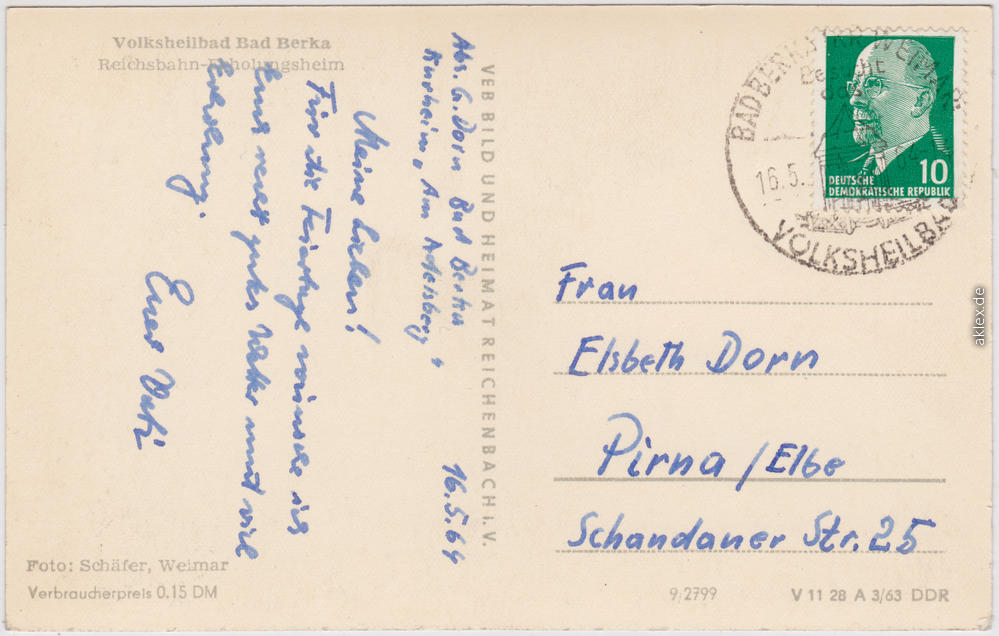 Volksheilbad Bad Berka
Reichsbahn-Erholungsheim
Abs. G. Dorn Bad Berka
Kurheim „Am Adelsberg"
16.5.64
Meine Lieben!
Für die Feiertage wünsche ich
Euch recht gutes Wetter und viel
Erholung.
Euer Vati
VEB BILD UND HEIMAT REICHENBACH i. V.
BAD BERKA (KR WEIMAR)
16.5.
VOLKSHEILBAD
10
DEUTSCHE
DEMOKRATISCHE REPUBLIK
Frau
Elsbeth Dorn
Pirna / Elbe
Schandauer Str. 25
Foto: Schäfer, Weimar
Verbraucherpreis 0.15 DM
9/2799
V 11 28 A 3/63 DDR
aklex.de